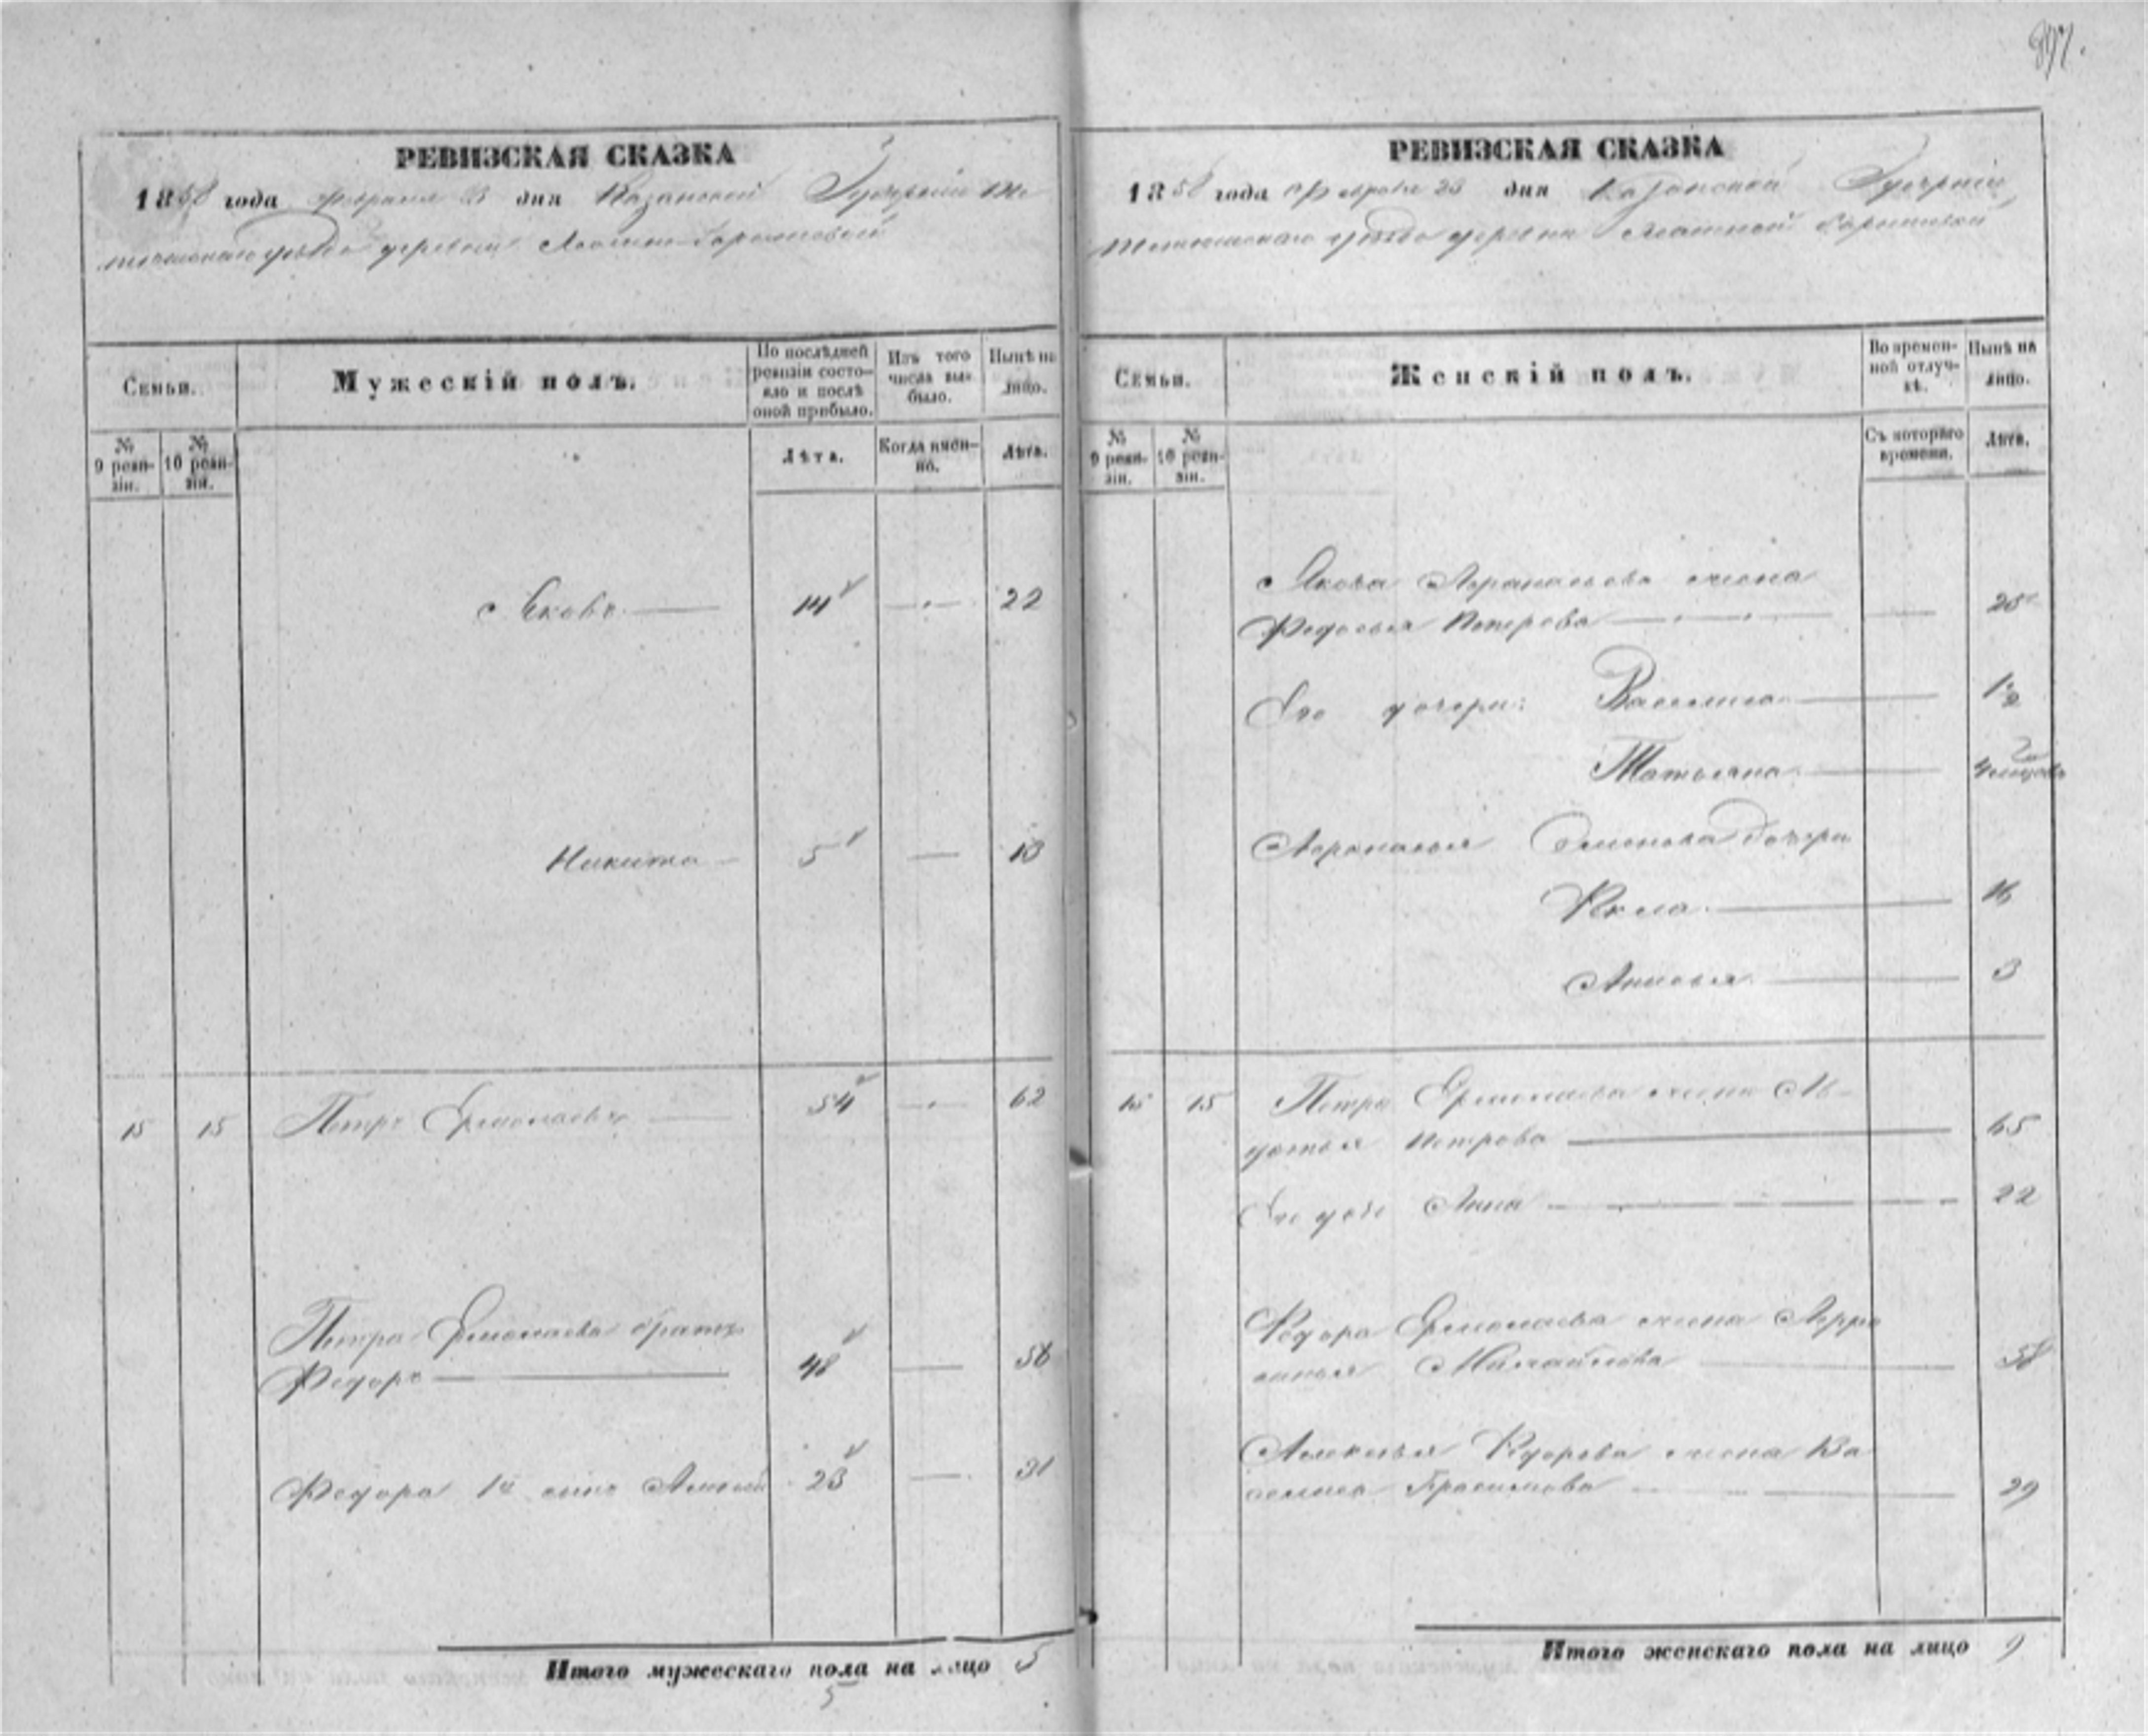 РЕВИЗСКАЯ СКАЗКА
1858 года февраля 23 дня Казанской Губернии Те
тюшскаго уезда деревни
Семьи.
Мужескій полъ.
По послѣдней ревизіи состояло и послѣ оной прибыло.
Изъ того числа выбыло.
Нынѣ на лицо.
№ 9 ревизіи.
№ 10 ревизіи.
Лѣта.
Когда именно.
Лѣта.
Яковъ 14 22
Никита 5 13
15 15 Петръ Ермолаевъ 54 62
Петра Ермолаева братъ
Федоръ 48 56
Федора 1й сынъ Алексѣй 23 31
Итого мужескаго пола на лицо 5
5
РЕВИЗСКАЯ СКАЗКА
1858 года февраля 23 дня Казанской Губерніи
Тетюшскаго уезда деревни
Семьи.
Женскій полъ.
Во временной отлучкѣ.
Нынѣ на лицо.
№ 9 ревизіи.
№ 10 ревизіи.
Съ котораго времени.
Лѣта.
Якова Афанасьева жена
Федосья Петрова
Его дочери: Василиса 1 1/2
Татьяна
Афанасья Семенова дочери
Фекла 16
Анисья 3
15 15 Петра Ермолаева жена Ав
дотья Петрова 65
Его дочь Анна 22
Федора Ермолаева жена
Михайлова 58
Алексѣя Федорова жена Ва
силиса Герасимова 29
Итого женскаго пола на лицо 9